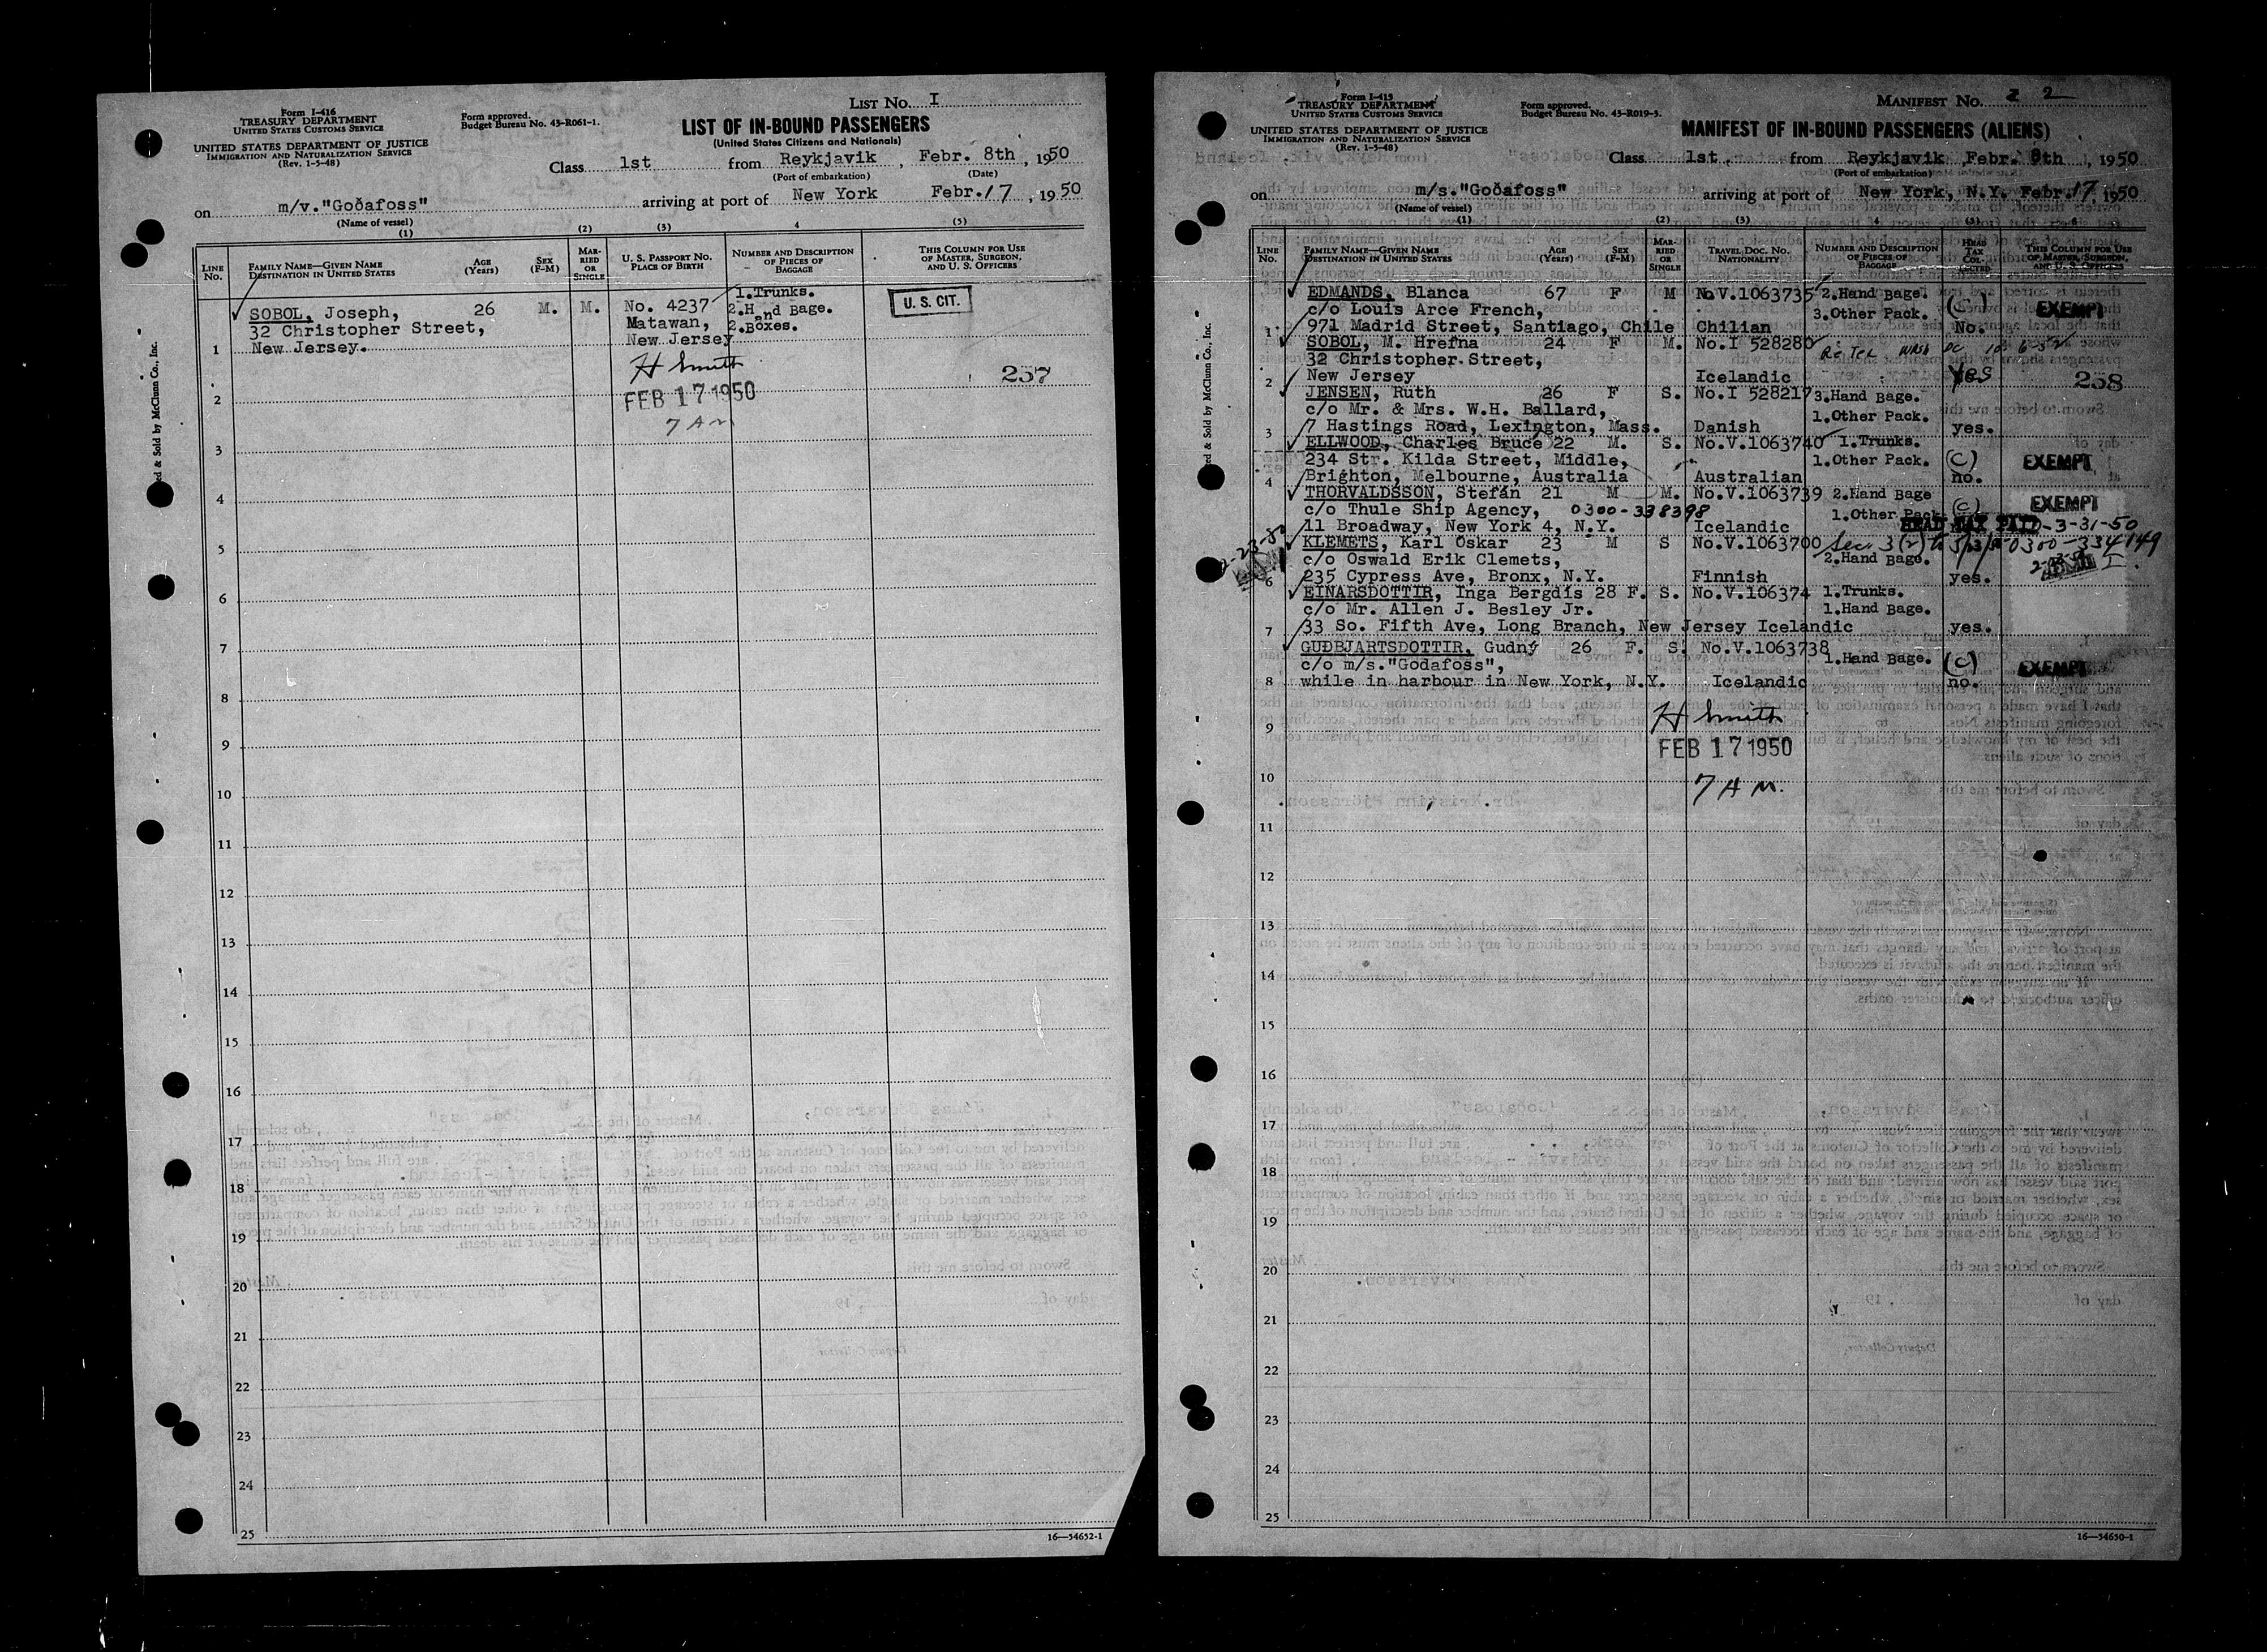 Form I-416
TREASURY DEPARTMENT
UNITED STATES CUSTOMS SERVICE
UNITED STATES DEPARTMENT OF JUSTICE
IMMIGRATION AND NATURALIZATION SERVICE
(Rev. 1-5-48)
Form approved.
Budget Bureau No. 43-R061-1.
LIST No. I
LIST OF IN-BOUND PASSENGERS
(United States Citizens and Nationals)
Class 1st from Reykjavik, Febr. 8th, 1950
(Port of embarkation) (Date)
on m/v."Goðafoss" arriving at port of New York Febr. 17, 1950
(Name of vessel)
(1) (2) (3) 4 (5)
LINE No.
FAMILY NAME—GIVEN NAME
DESTINATION IN UNITED STATES
AGE (Years)
SEX (F-M)
MARRIED OR SINGLE
U. S. PASSPORT No.
PLACE OF BIRTH
NUMBER AND DESCRIPTION OF PIECES OF BAGGAGE
THIS COLUMN FOR USE OF MASTER, SURGEON, AND U. S. OFFICERS
SOBOL, Joseph, 26 M. M. No. 4237 1.Trunks.
32 Christopher Street, Matawan, 2.Hand Bage.
1 New Jersey. New Jersey 2.Boxes.
U. S. CIT.
H Smith
257
FEB 17 1950
7 AM
2
3
4
5
6
7
8
9
10
11
12
13
14
15
16
17
18
19
20
21
22
23
24
25
16—54652-1
ed & Sold by McClunn Co., Inc.
Form I-415
TREASURY DEPARTMENT
UNITED STATES CUSTOMS SERVICE
UNITED STATES DEPARTMENT OF JUSTICE
IMMIGRATION AND NATURALIZATION SERVICE
(Rev. 1-5-48)
Form approved.
Budget Bureau No. 43-R019-5.
MANIFEST No. 2 2
MANIFEST OF IN-BOUND PASSENGERS (ALIENS)
Class 1st. from Reykjavik, Febr. 8th, 1950
(Port of embarkation)
on m/s."Goðafoss" arriving at port of New York, N.Y. Febr. 17, 1950
(Name of vessel)
(1) (2) (3) 4 (5) 6
LINE No.
FAMILY NAME—GIVEN NAME
DESTINATION IN UNITED STATES
AGE (Years)
SEX (F-M)
MARRIED OR SINGLE
TRAVEL DOC. No.
NATIONALITY
NUMBER AND DESCRIPTION OF PIECES OF BAGGAGE
HEAD TAX COLLECTED
THIS COLUMN FOR USE OF MASTER, SURGEON, AND U. S. OFFICERS
EDMANDS, Blanca 67 F M No.V.1063735 2.Hand Bage.
c/o Louis Arce French, 3.Other Pack. (C) EXEMPT
1 971 Madrid Street, Santiago, Chile Chilian No.
SOBOL, M. Hrefna 24 F M. No.I 528280
32 Christopher Street,
2 New Jersey Icelandic Yes 258
JENSEN, Ruth 26 F S. No.I 528217 3.Hand Bage.
c/o Mr. & Mrs. W.H. Ballard, 1.Other Pack.
3 7 Hastings Road, Lexington, Mass. Danish yes.
ELLWOOD, Charles Bruce 22 M. S. No.V.1063740 1.Trunks.
234 Str. Kilda Street, Middle, 1.Other Pack. (C) EXEMPT
4 Brighton, Melbourne, Australia Australian no.
THORVALDSSON, Stefán 21 M M. No.V.1063739 2.Hand Bage
c/o Thule Ship Agency, 0300-338398 1.Other Pack. (C) EXEMPT
11 Broadway, New York 4, N.Y. Icelandic HEAD TAX PAID-3-31-50
KLEMETS, Karl Oskar 23 M S No.V.1063700 0300-334149
c/o Oswald Erik Clemets, 2.Hand Bage.
6 235 Cypress Ave, Bronx, N.Y. Finnish yes.
EINARSDOTTIR, Inga Bergdís 28 F. S. No.V.106374 1.Trunks.
c/o Mr. Allen J. Besley Jr. 1.Hand Bage.
7 33 So. Fifth Ave, Long Branch, New Jersey Icelandic yes.
GUÐBJARTSDOTTIR, Gudný 26 F. S. No.V.1063738
c/o m/s."Godafoss", 1.Hand Bage. (C) EXEMPT
8 while in harbour in New York, N.Y. Icelandic no.
H Smith
9
FEB 17 1950
10
7 AM.
11
12
13
14
15
16
17
18
19
20
21
22
23
24
25
16—54650-1
ed & Sold by McClunn Co., Inc.